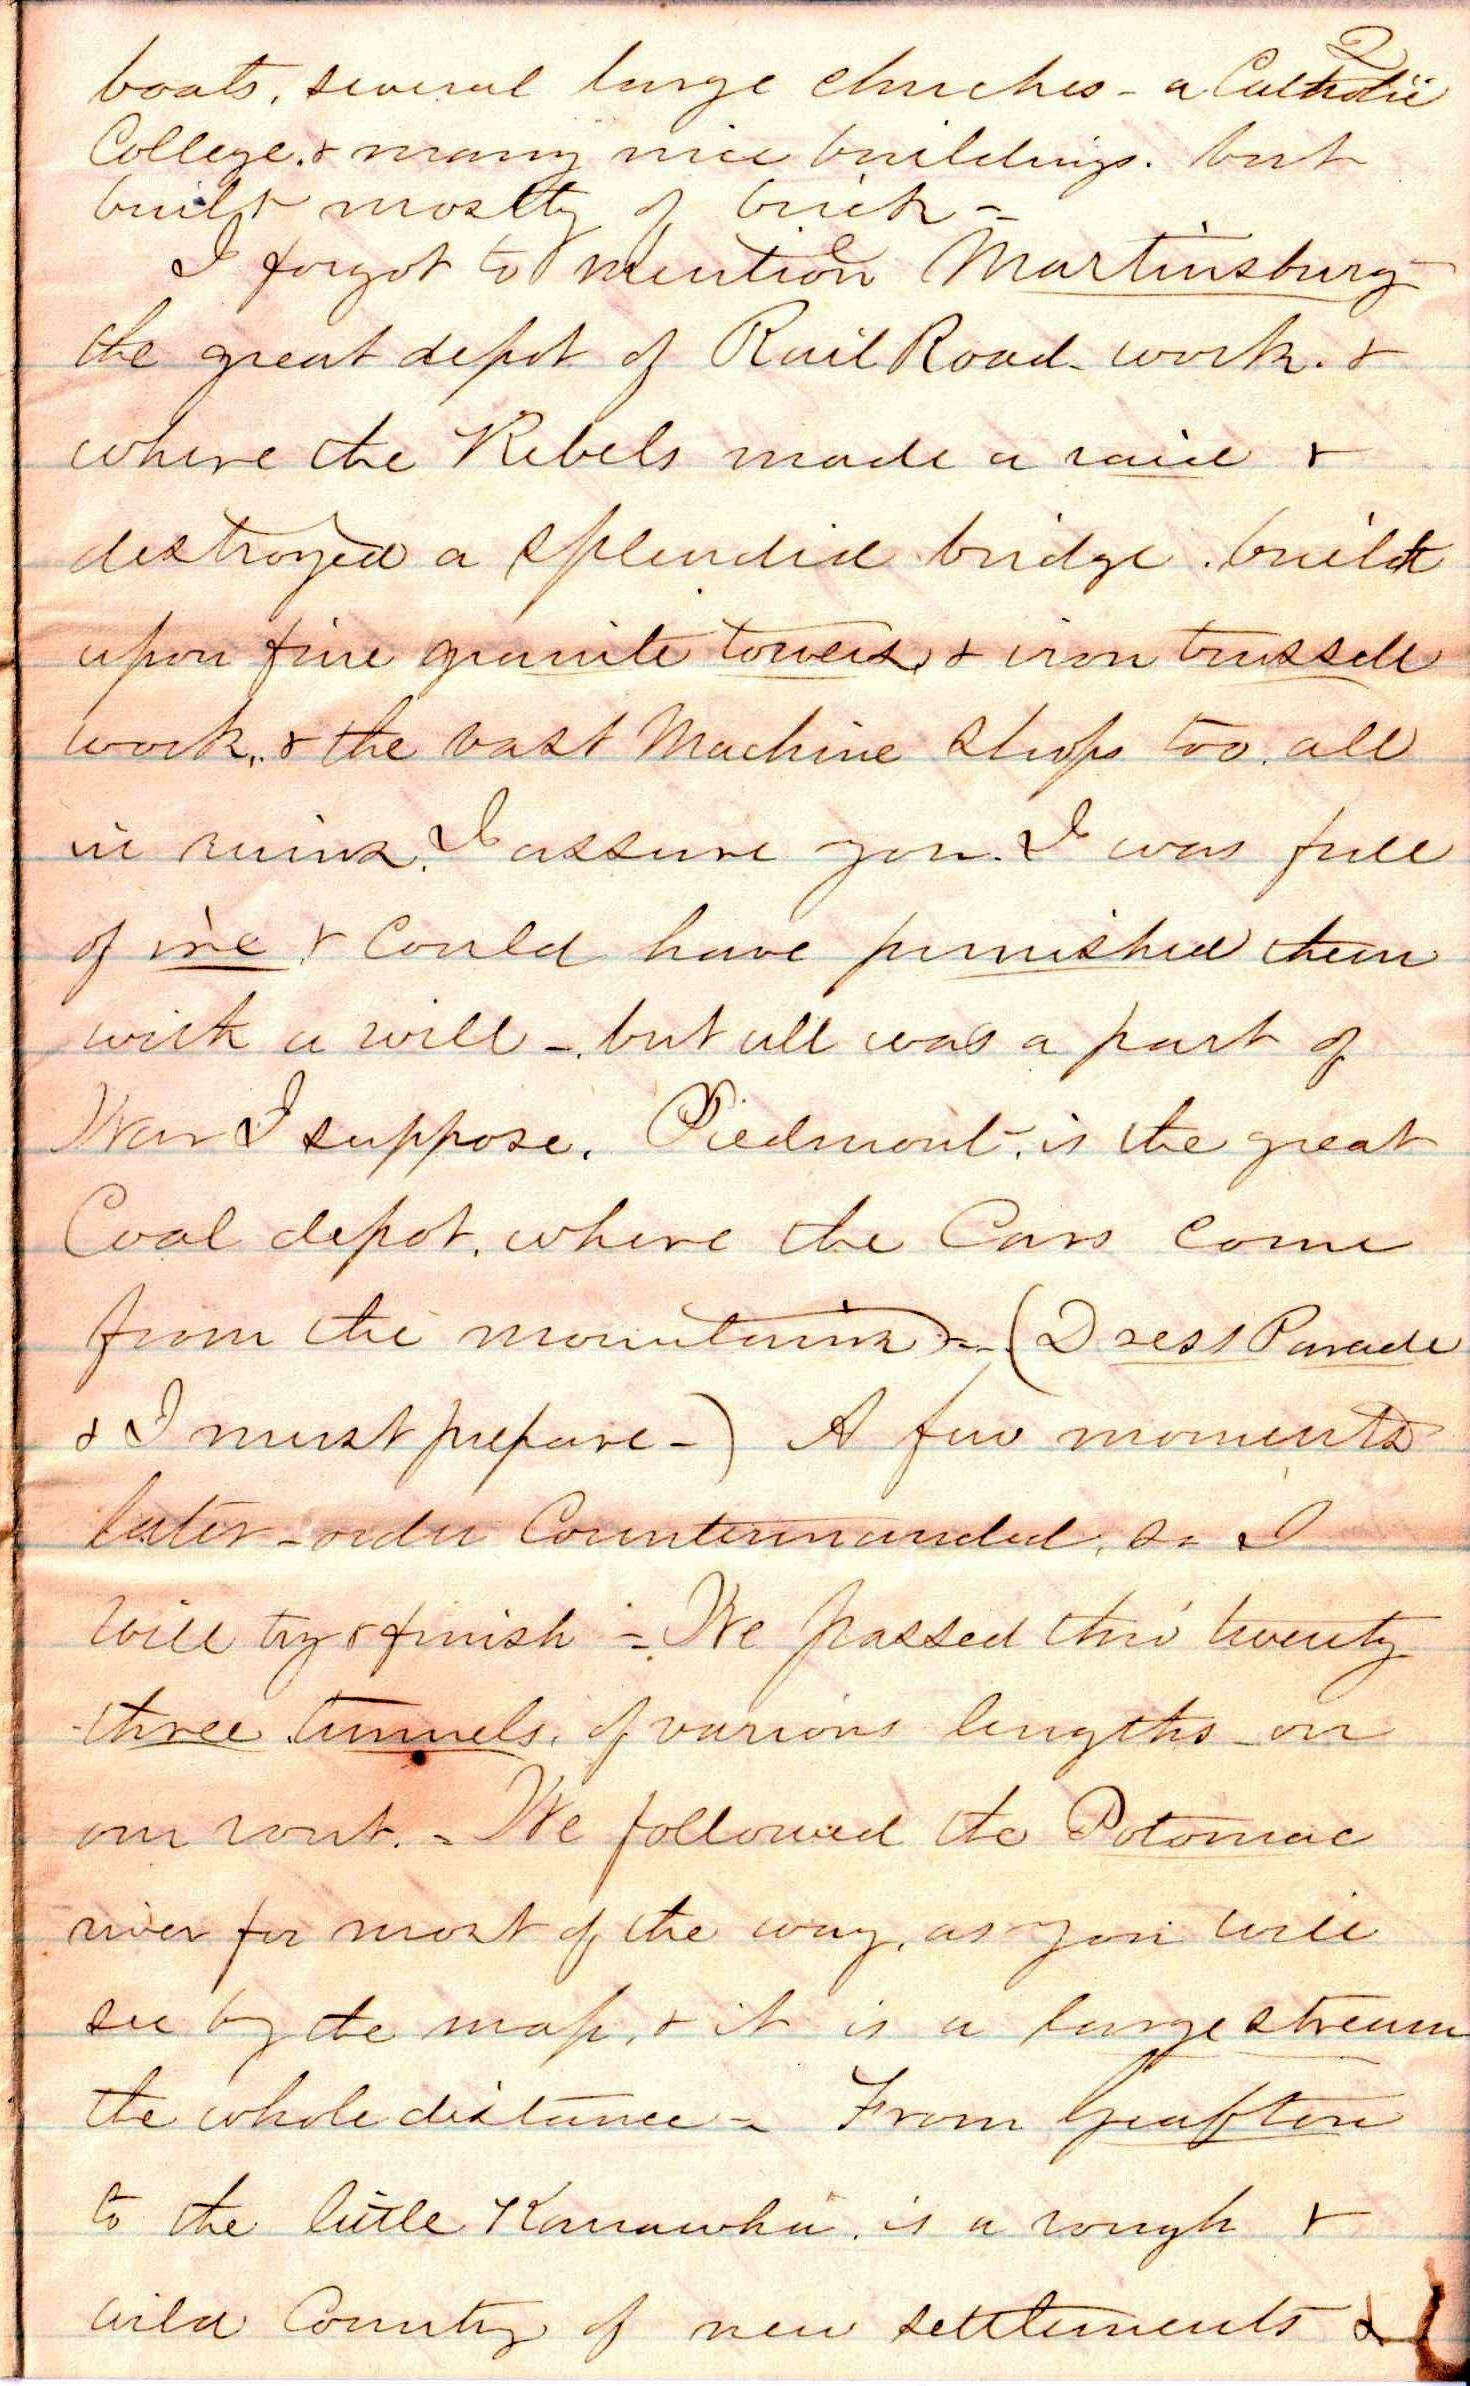 2
boats, several large churches - a Catholic
College, & many nice buildings. but
built mostly of brick -
I forgot to mention Martinsburg
the great depot of Rail Road - work. &
where the Rebels made a raid &
destroyed a splendid bridge. built
upon fine granite towers, & iron trussell
work, & the vast Machine shops too. all
in ruins. I assure you. I was full
of ire & could have punished them
with a will -. but all was a part of
War I suppose. Piedmont, is the great
Coal depot, where the Cars come
from the mountains - (Dress Parade
& I must prepare -) A few moments
later - order Countermanded, so I
will try & finish - We passed thro' twenty
-three tunnels, of various lengths - on
our rout. - We followed the Potomac
river for most of the way, as you will
see by the map, & it is a large stream
the whole distance - From Grafton
to the little Kanawha, is a rough &
wild Country of new settlements &